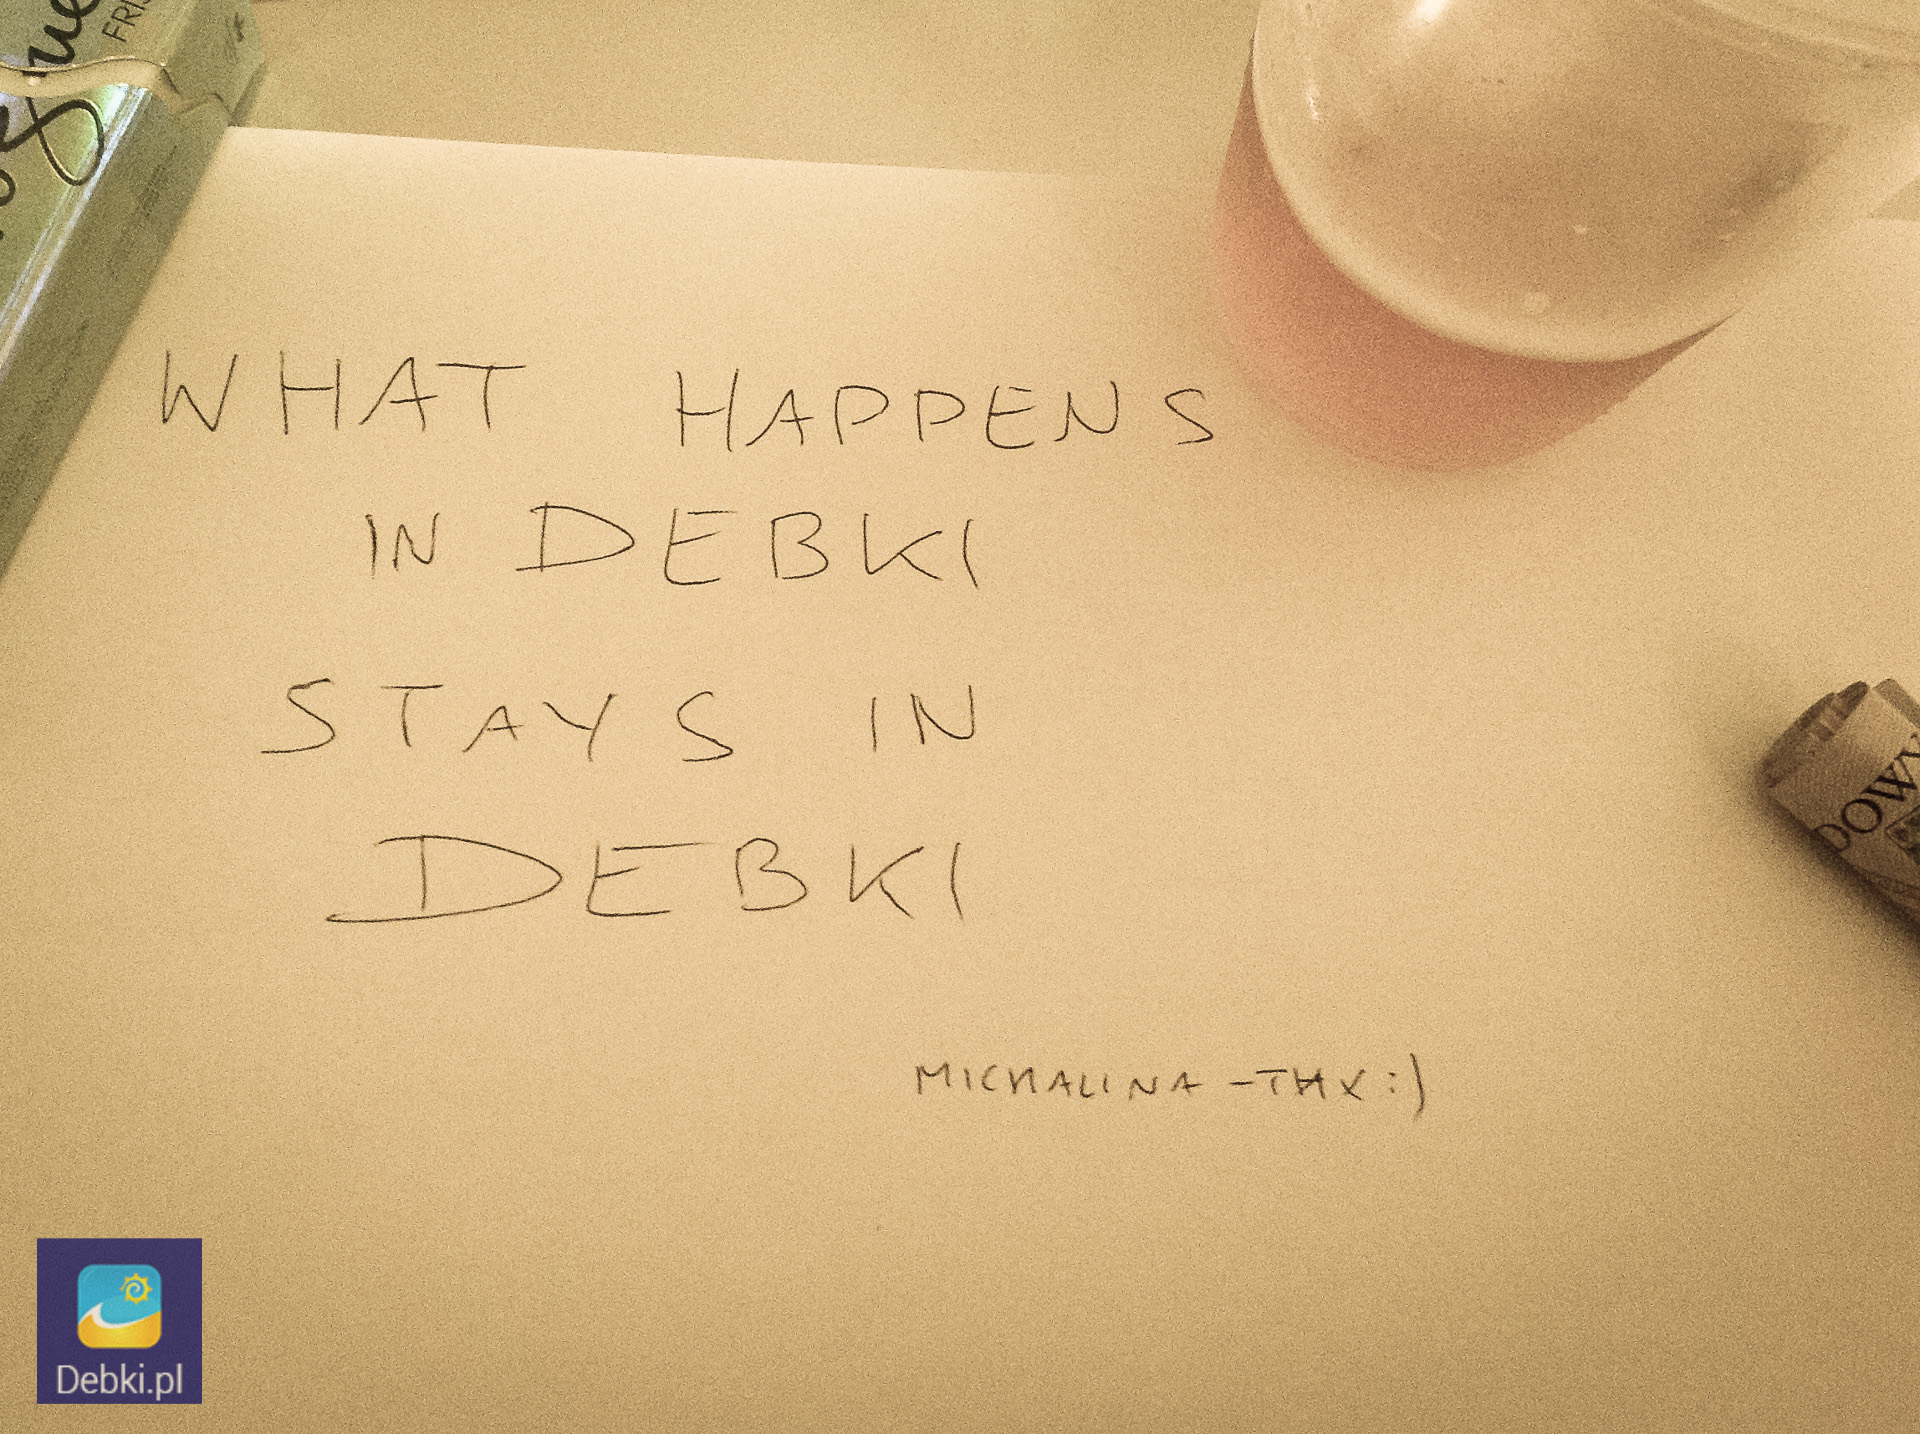 FRIS
WHAT HAPPENS
IN DEBKI
STAYS IN
DEBKI
DOWY
MICHALINA - THX :)
Debki.pl